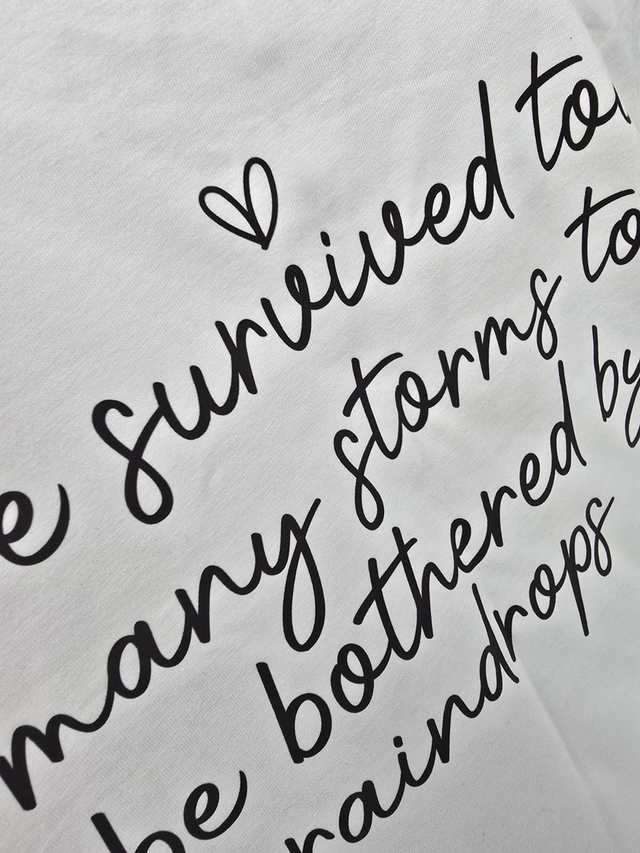 survived
many storms to
be bothered by
raindrops